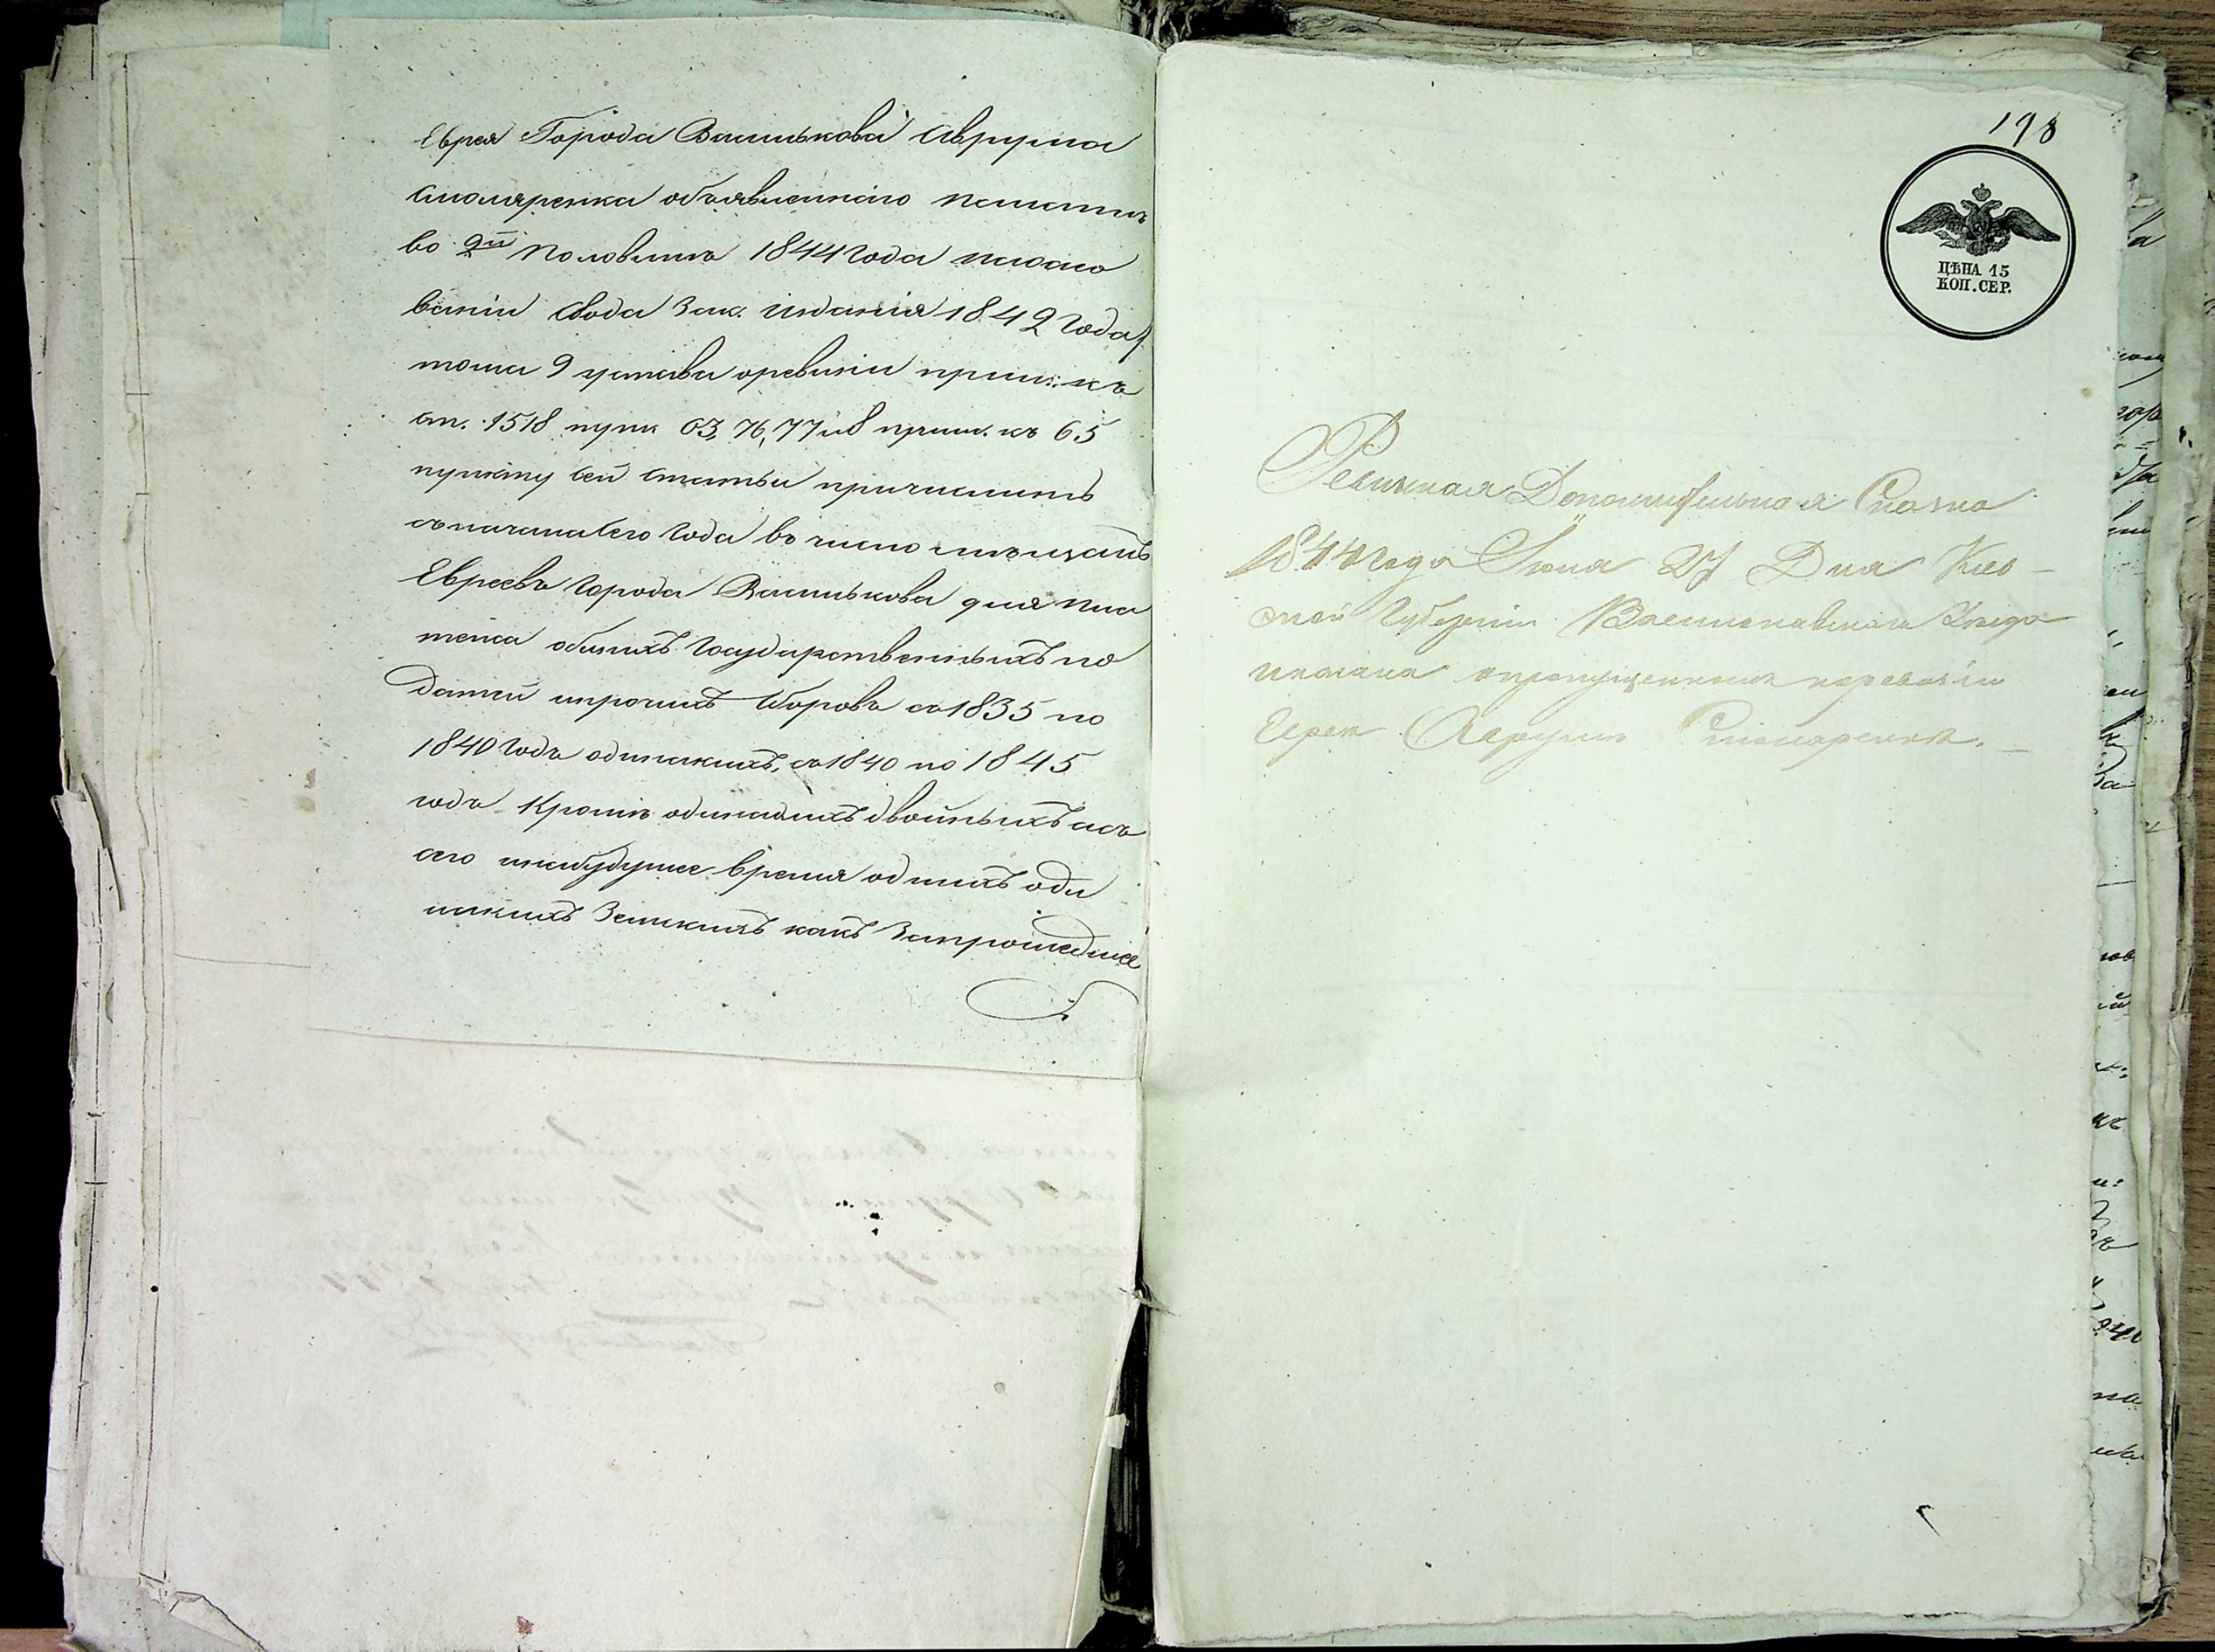 Еврея Города Василькова Аврума
Столяренка объявленнаго палатѣ
во 2й половинѣ 1844 года наосно
ваніи свода Зак. изданія 1842 года
тома 9 устава оревизіи прим. къ
ст. 1518 пунк 63, 76, 77 и 8 прим. къ 65
пункту сей статьи причислить
съ начала сего года въ число мѣщанъ
Евреевъ города Василькова для пла
тежа общихъ Государственныхъ по
датей ипрочихъ сборовъ съ 1835 по
1840 годъ одинакихъ, съ 1840 по 1845
годъ кромѣ одинакихъ двойныхъ а съ
сего инабудущее время однихъ оди
накихъ Зенскихъ какъ Запрошедшее
198
ЦѢНА 15
КОП. СЕР.
Ревизкая Дополнительная Сказка
1844 года Іюня 27 Дня Кіев-
ской Губерніи Васильковскаго Уѣзда
опропущенномъ поревизіи
Еврея Аврумъ Столяренка.